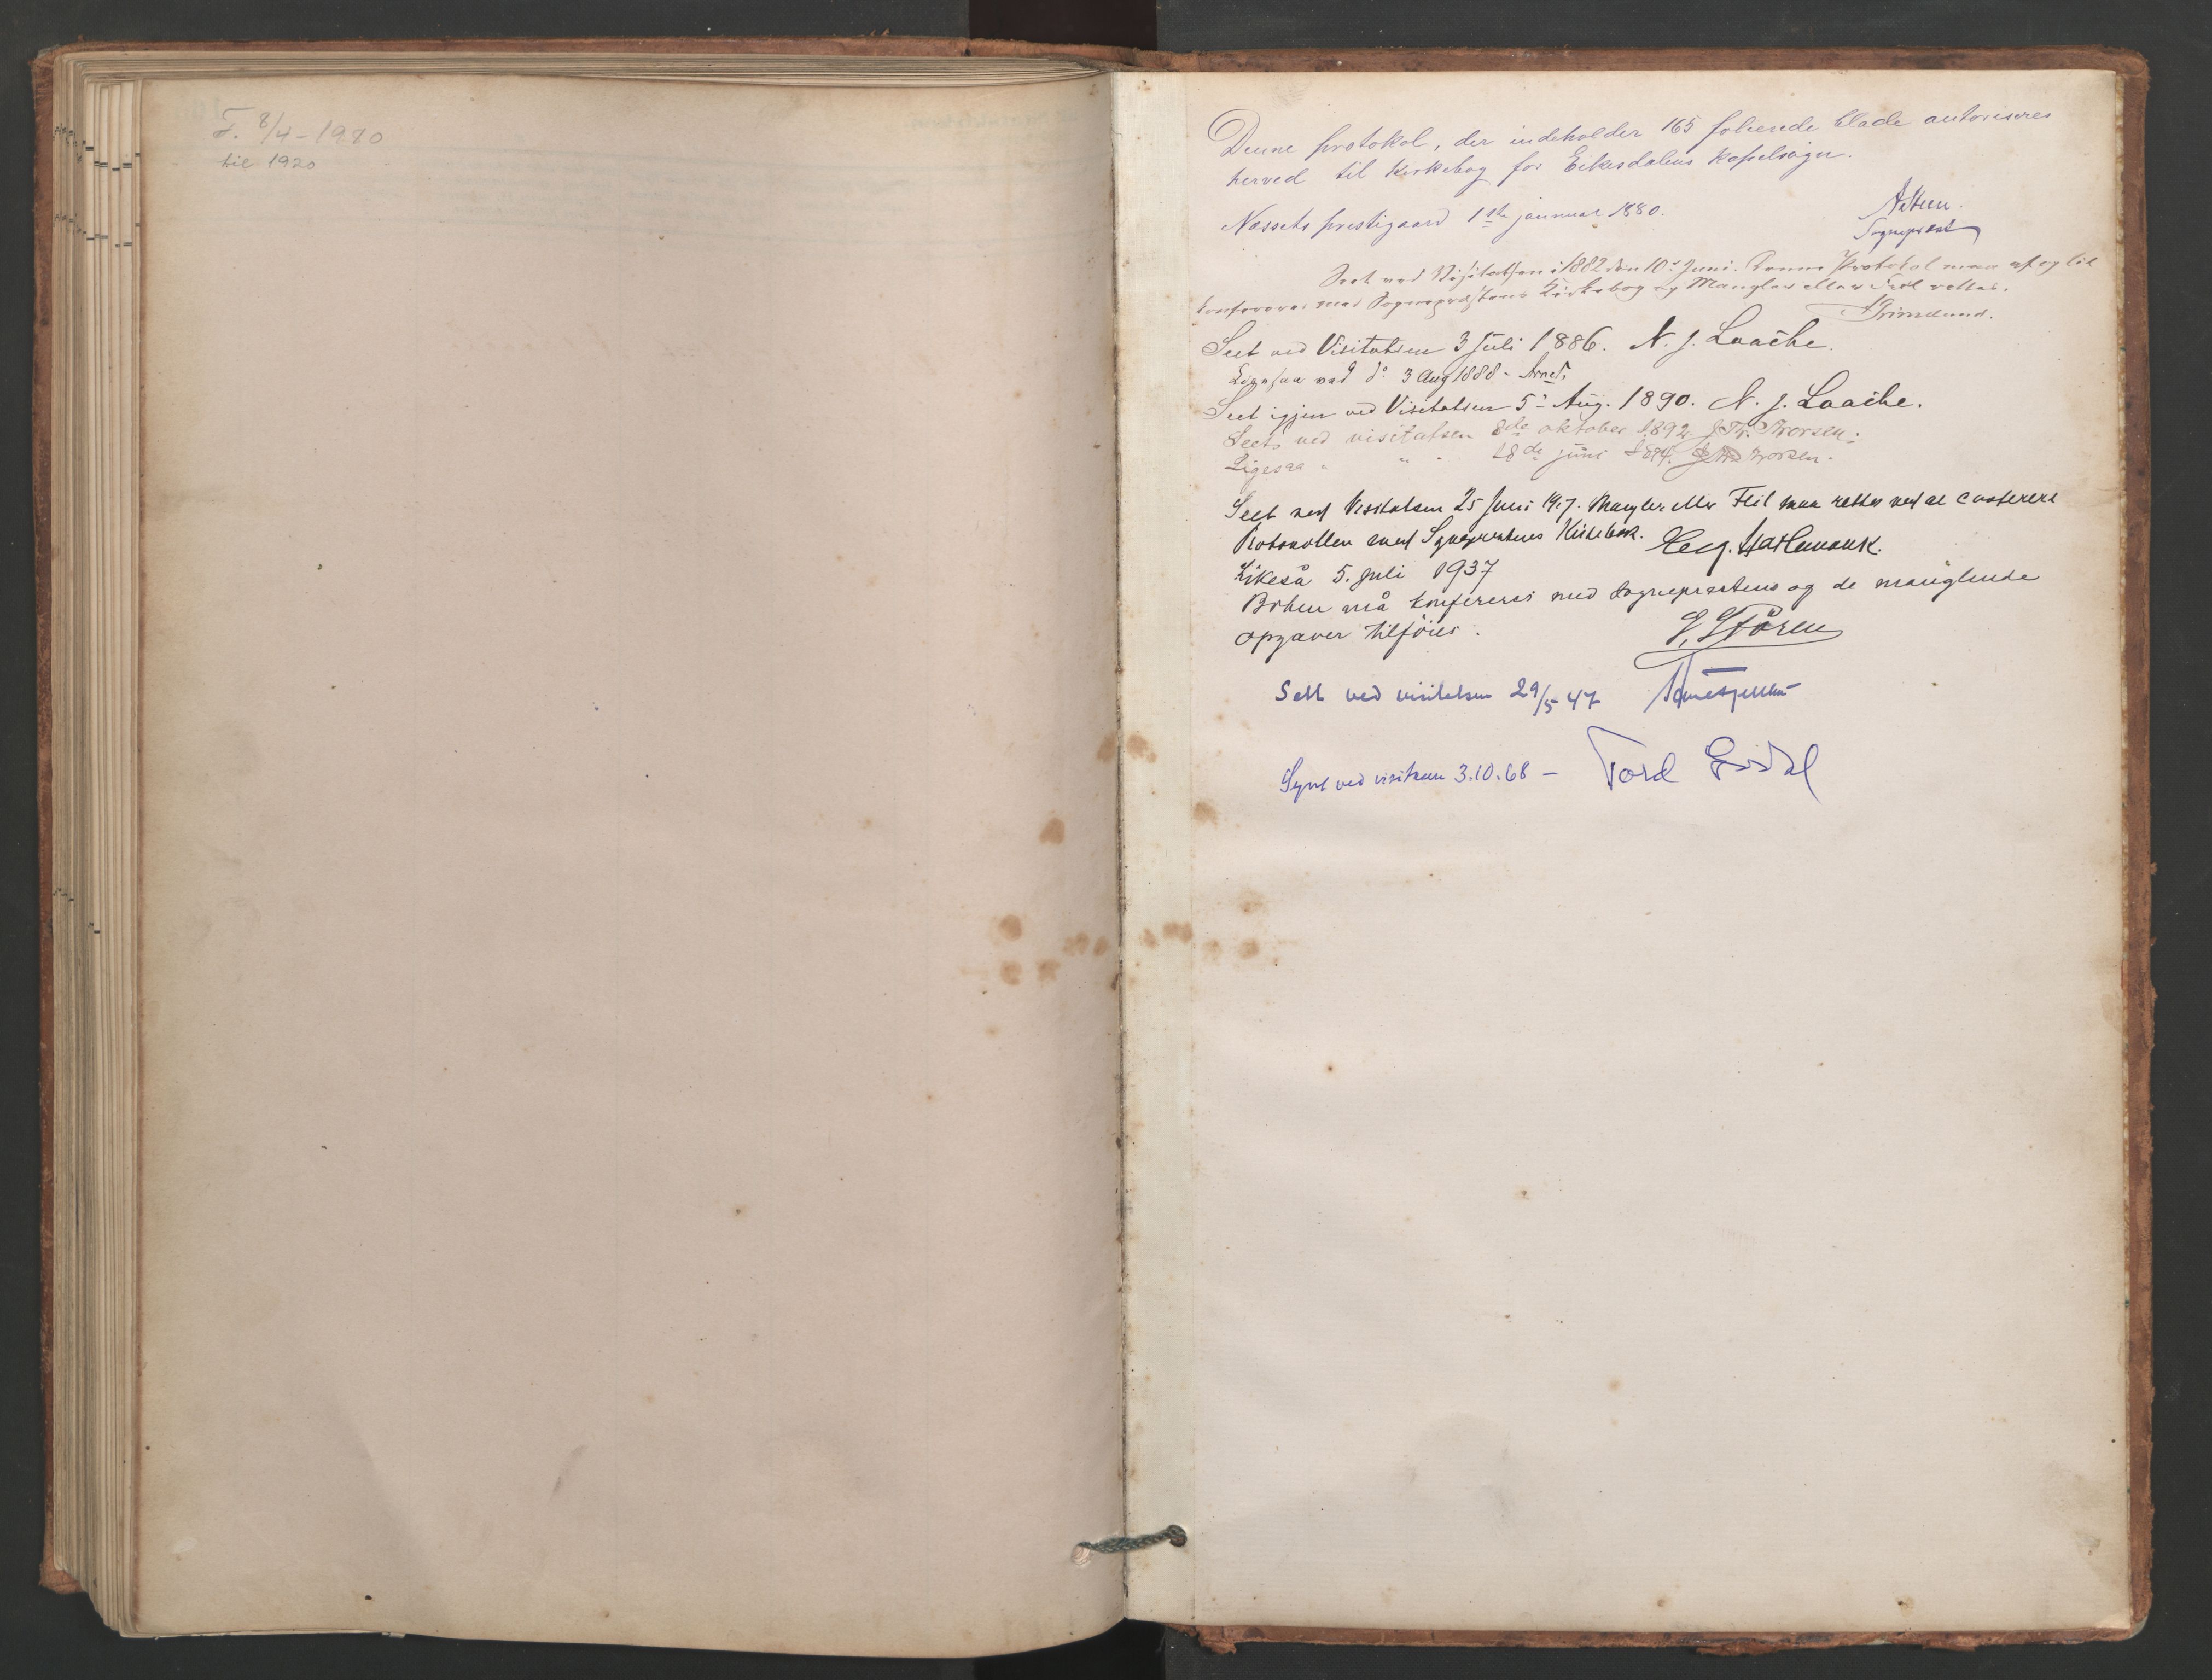 F. 8/4-1970
til 1920
Denne protokol, der indeholder 165 folierede blade autoriseres
herved til Kirkebog for Eikesdalens Kapelsogn.
Nessets prestigaard 1ste januar 1880.
Sogneprest
Seet ved Visitatsen i 1882 den 10de Juni. Denne Protokol maa af og til
konfereres med Sognepræstens Kirkebog og Mangler eller Feil rettes.
Grimelund.
Seet ved Visitatsen 3 Juli 1886. N. J. Laache.
Ligesaa ved do 3 Aug 1888.
Seet igjen ved Visitatsen 5te Aug. 1890. N. J. Laache.
Seet ved visitatsen 8de oktober 1892 J. Th. Brorsen.
Ligesaa " " " 28de juni 1894. Brorsen.
Seet ved Visitatsen 25 Juni 1917. Mangler eller Feil maa rettes ved at conferere
Protokollen med Sogneprestens Kirkebok.
Likeså 5. juli 1937
Boken må konfereres med sogneprestens og de manglende
opgaver tilføies.
S. Støren
Sett ved visitatsen 29/5 47
Synt ved visitasen 3.10.68 - Tord Godal